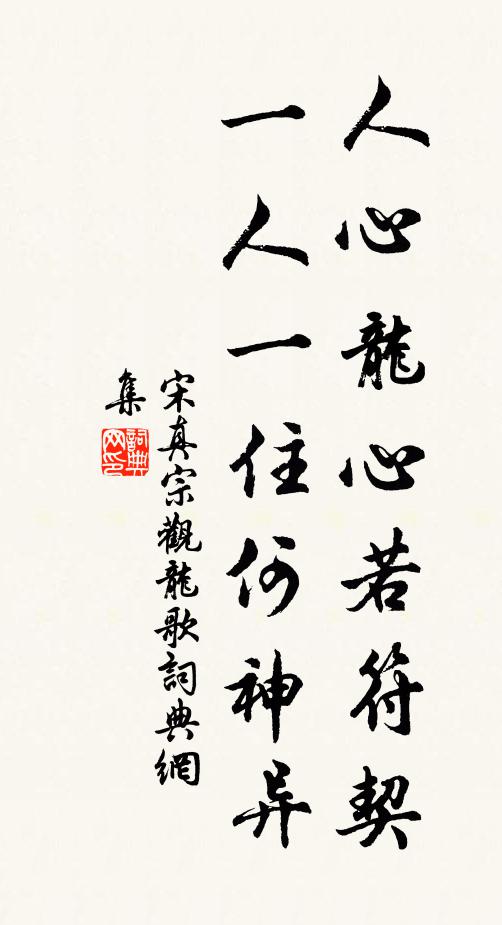 人心龍心若符契
一人一住何神异
宋真宗觀龍歌詞典網
集
詞典网印